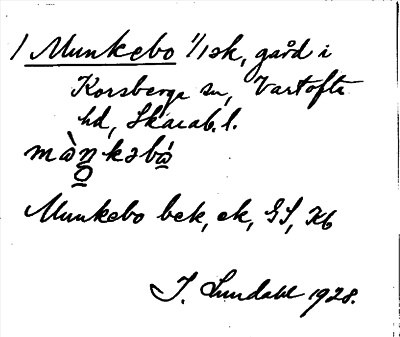 / Munkebo 1/1 sk, gård i
Korsberga sn, Vartofta
hd, Skarab. l.
Munkebo bek, ek, GS, Kb
I. Lundahl 1928.